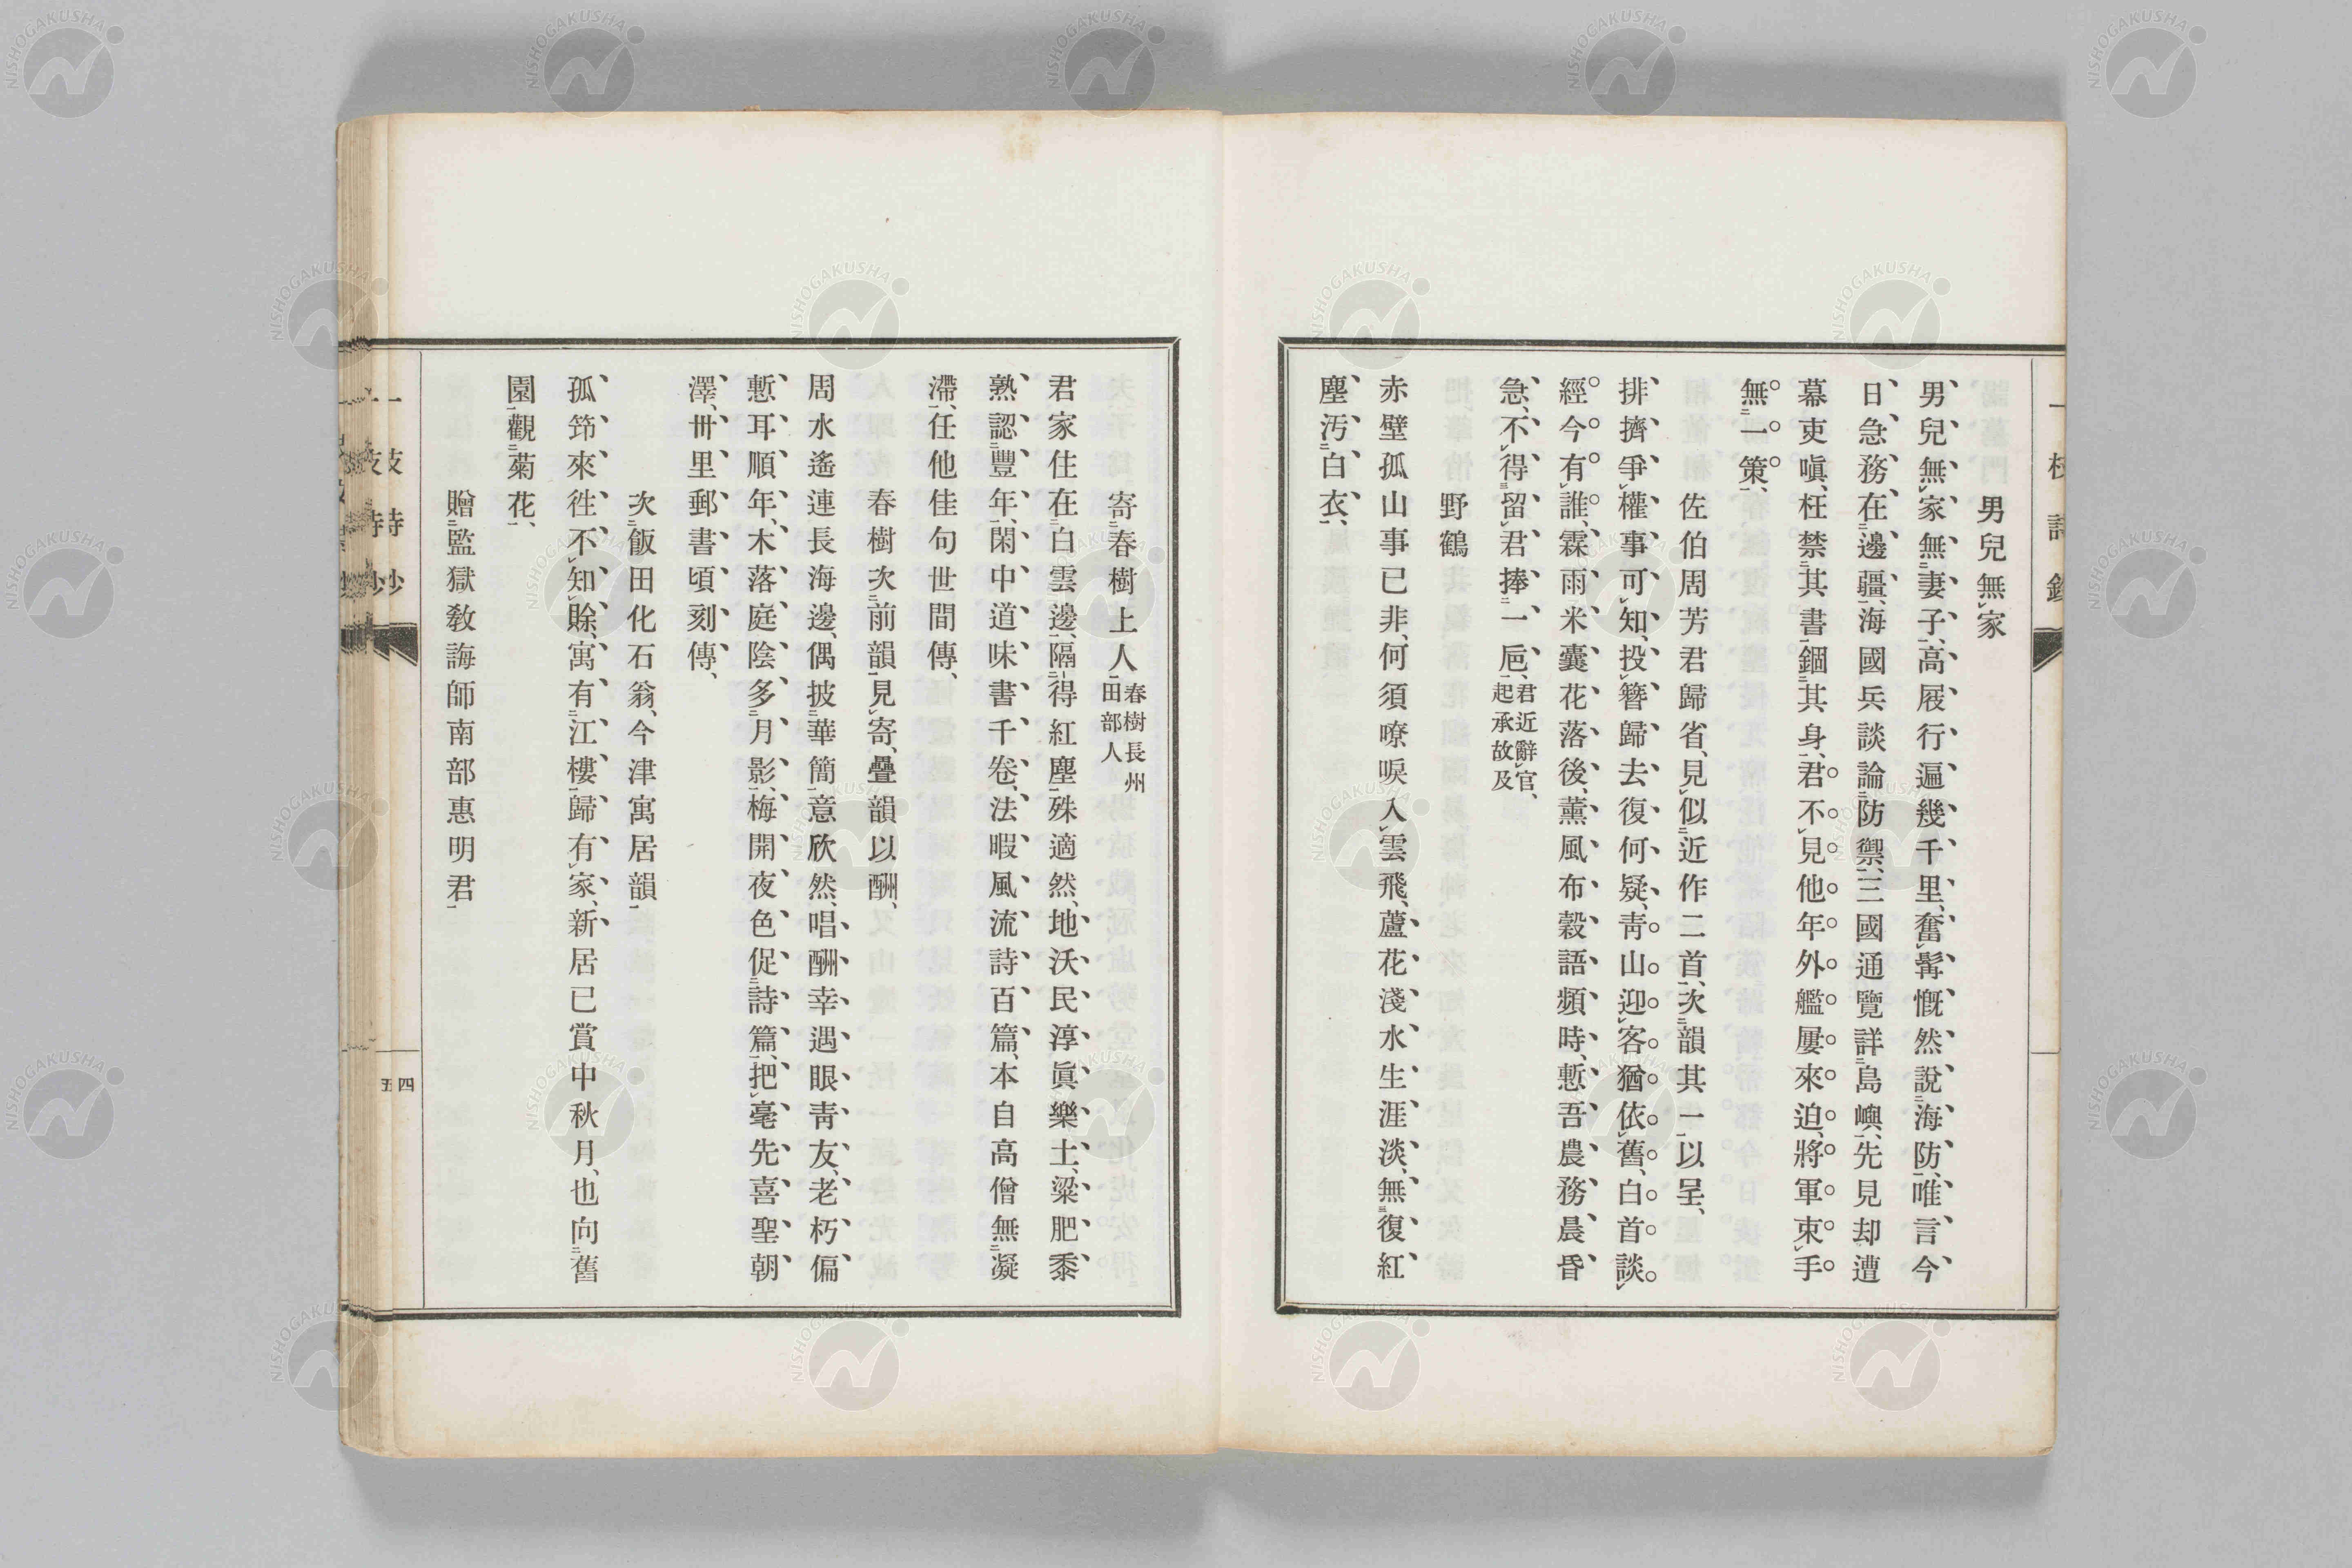 男兒無家
男兒無家無妻子、高屐行遍幾千里、奮髯慨然說海防、唯言今
日急務在邊疆、海國兵談論防禦、三國通覽詳島嶼、先見却遭
幕吏嗔、枉禁其書錮其身、君不見他年外艦屢來迫、將軍束手
無一策、
佐伯周芳君歸省、見似近作二首、次韻其一以呈、
排擠爭權事可知、投簪歸去復何疑、靑山迎客猶依舊、白首談
經今有誰、霖雨米囊花落後、薰風布穀語頻時、慙吾農務晨昏
急、不得留君捧一巵、君近辭官、起承故及
野鶴
赤壁孤山事已非、何須嘹唳入雲飛、蘆花淺水生涯淡、無復紅
塵汚白衣、
寄春樹上人 春樹長州田部人
君家住在白雲邊、隔得紅塵殊適然、地沃民淳眞樂土、粱肥黍
熟認豐年、閑中道味書千卷、法暇風流詩百篇、本自高僧無凝
滯、任他佳句世間傳、
春樹次前韻見寄、疊韻以酬、
周水遙連長海邊、偶披華簡意欣然、唱酬幸遇眼靑友、老朽偏
慙耳順年、木落庭陰多月影、梅開夜色促詩篇、把毫先喜聖朝
澤、卅里郵書頃刻傳、
次飯田化石翁、今津寓居韻
孤笻來往不知賖、寓有江樓歸有家、新居已賞中秋月、也向舊
園觀菊花、
贈監獄敎誨師南部惠明君
一枝詩鈔
四